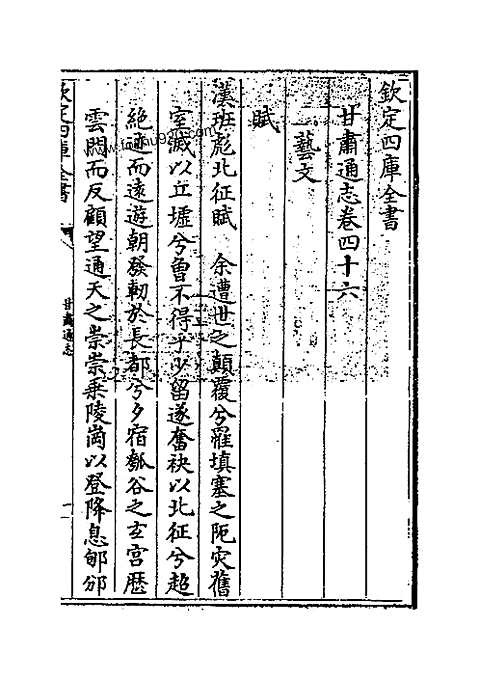 欽定四庫全書
甘肅通志卷四十六
藝文
賦
漢班彪北征賦　余遭世之顛覆兮罹填塞之阨灾舊
室滅以丘墟兮曽不得乎少留遂奮袂以北征兮超
絶迹而遠遊朝發軔於長都兮夕宿瓠谷之玄宫歴
雲門而反顧望通天之崇崇乗陵崗以登降息郇邠
欽定四庫全書
甘肅通志
一